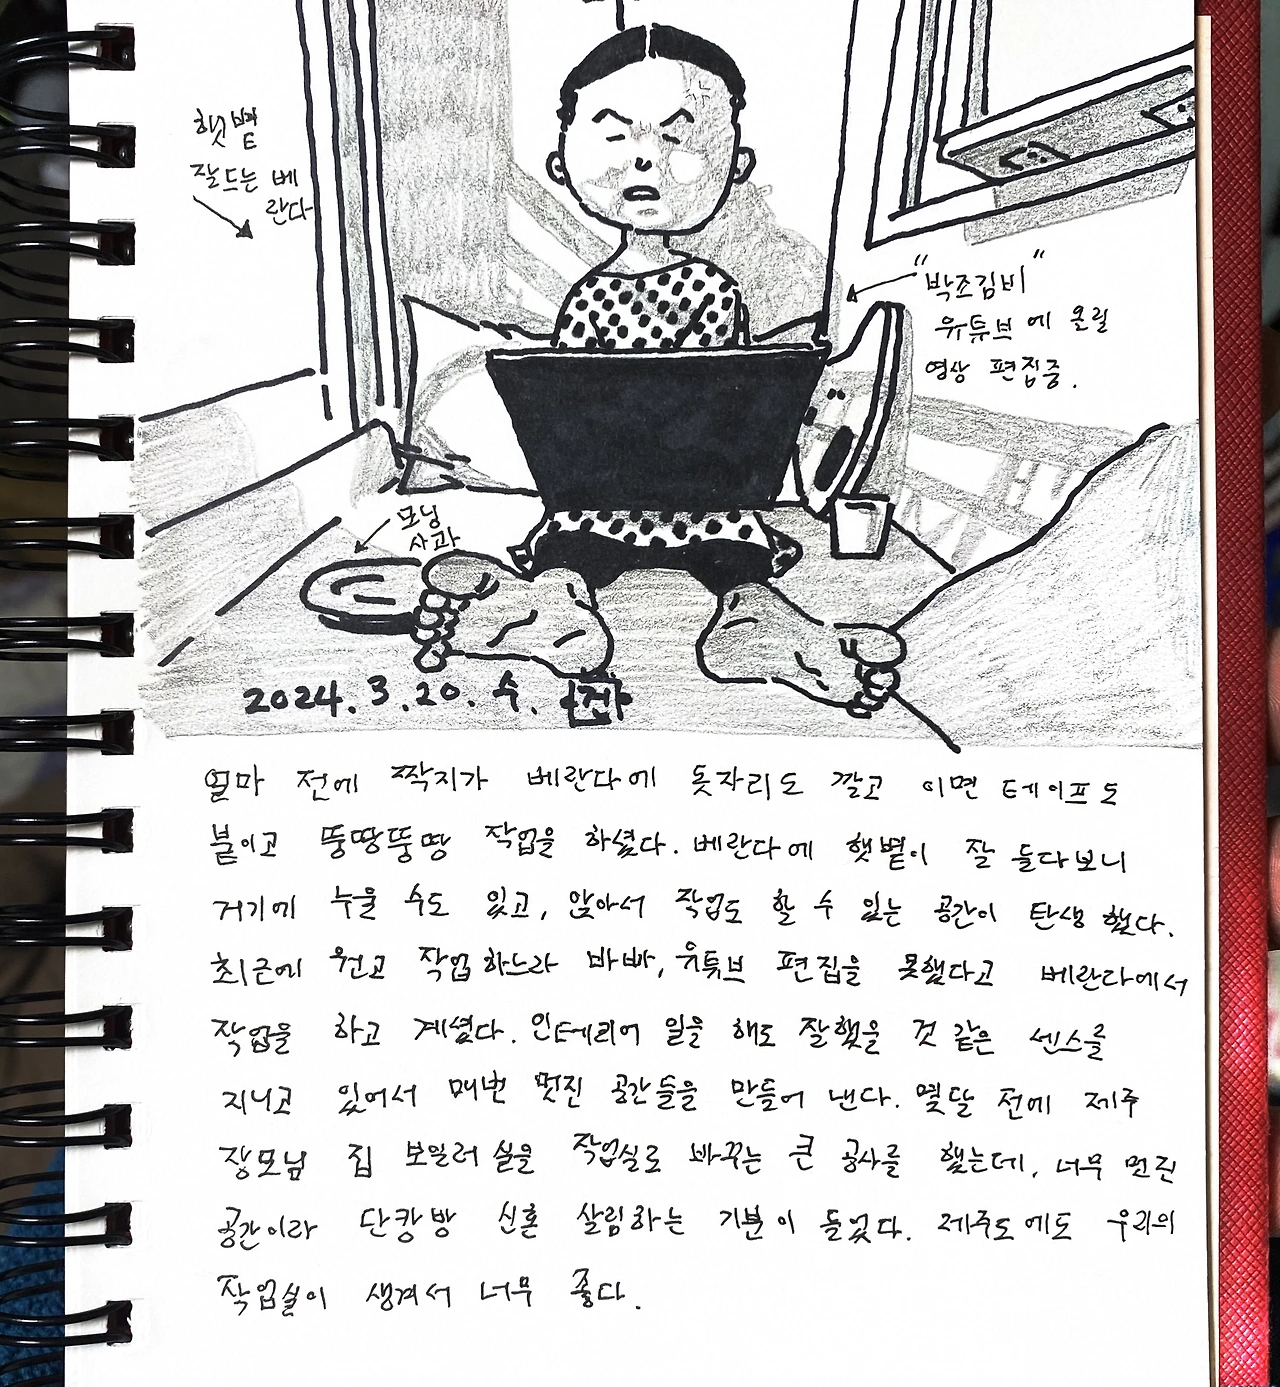 햇볕
잘드는 베
란다
"박조김비"
유튜브에 올릴
영상 편집중.
모닝
사과
2024.3.20.수.
얼마 전에 짝지가 베란다에 돗자리도 깔고 이면 테이프도
붙이고 뚱땅뚱땅 작업을 하셨다. 베란다에 햇볕이 잘 들다보니
거기에 누울 수도 있고, 앉아서 작업도 할 수 있는 공간이 탄생했다.
최근에 원고 작업하느라 바빠, 유튜브 편집을 못했다고 베란다에서
작업을 하고 계셨다. 인테리어 일을 해도 잘했을 것 같은 센스를
지니고 있어서 매번 멋진 공간들을 만들어 낸다. 몇달 전에 제주
장모님 집 보일러실을 작업실로 바꾸는 큰 공사를 했는데, 너무 멋진
공간이라 단칸방 신혼 살림하는 기분이 들었다. 제주도에도 우리의
작업실이 생겨서 너무 좋다.